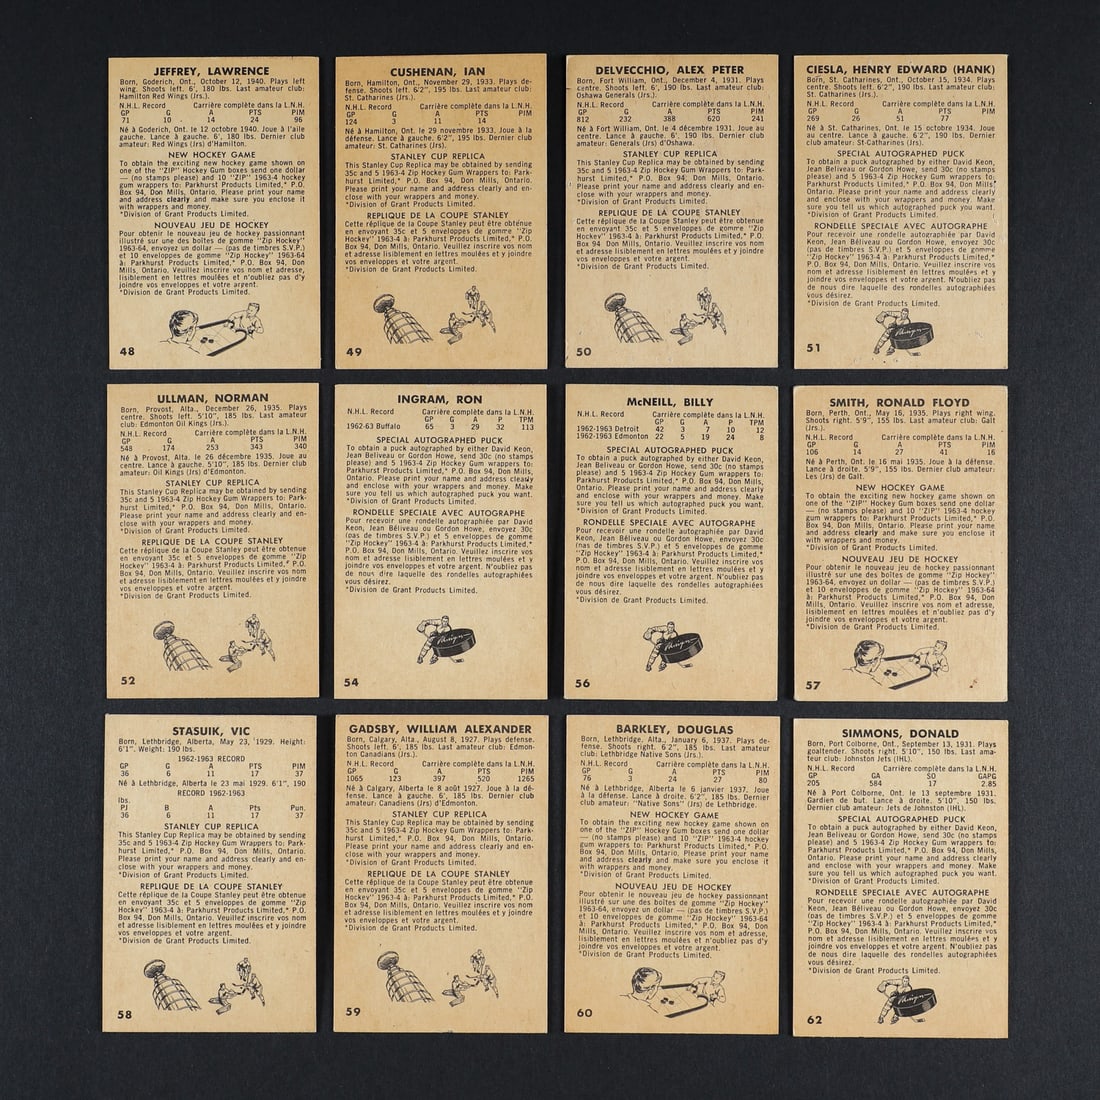 JEFFREY, LAWRENCE
Born, Goderich, Ont., October 12, 1940. Plays left
wing. Shoots left. 6', 180 lbs. Last amateur club:
Hamilton Red Wings (Jrs.).
N.H.L. Record Carrière complète dans la L.N.H.
GP G A PTS PIM
71 10 14 24 96
Né à Goderich, Ont. le 12 octobre 1940. Joue à l'aile
gauche. Lance à gauche. 6', 180 lbs. Dernier club
amateur: Red Wings (Jrs) d'Hamilton.
NEW HOCKEY GAME
To obtain the exciting new hockey game shown on
one of the "ZIP" Hockey Gum boxes send one dollar
— (no stamps please) and 10 "ZIP" 1963-4 hockey
gum wrappers to: Parkhurst Products Limited,* P.O.
Box 94, Don Mills, Ontario. Please print your name
and address clearly and make sure you enclose it
with wrappers and money.
*Division of Grant Products Limited.
NOUVEAU JEU DE HOCKEY
Pour obtenir le nouveau jeu de hockey passionnant
illustré sur une des boîtes de gomme "Zip Hockey"
1963-64, envoyez un dollar — (pas de timbres S.V.P.)
et 10 enveloppes de gomme "Zip Hockey" 1963-64
à: Parkhurst Products Limited,* P.O. Box 94, Don
Mills, Ontario. Veuillez inscrire vos nom et adresse,
lisiblement en lettres moulées et n'oubliez pas d'y
joindre vos enveloppes et votre argent.
*Division de Grant Products Limited.
48
CUSHENAN, IAN
Born, Hamilton, Ont., November 29, 1933. Plays de-
fense. Shoots left. 6'2", 195 lbs. Last amateur club:
St. Catharines (Jrs.).
N.H.L. Record Carrière complète dans la L.N.H.
GP G A PTS PIM
124 3 11 14
Né à Hamilton, Ont. le 29 novembre 1933. Joue à la
défense. Lance à gauche. 6'2", 195 lbs. Dernier club
amateur: St. Catharines (Jrs).
STANLEY CUP REPLICA
This Stanley Cup Replica may be obtained by sending
35c and 5 1963-4 Zip Hockey Gum Wrappers to: Park-
hurst Products Limited,* P.O. Box 94, Don Mills, Ontario.
Please print your name and address clearly and en-
close with wrappers and money.
*Division of Grant Products Limited.
REPLIQUE DE LA COUPE STANLEY
Cette réplique de la Coupe Stanley peut être obtenue
en envoyant 35c et 5 enveloppes de gomme "Zip
Hockey" 1963-4 à: Parkhurst Products Limited,* P.O.
Box 94, Don Mills, Ontario. Veuillez inscrire vos nom
et adresse lisiblement en lettres moulées et y joindre
vos enveloppes et votre argent.
*Division de Grant Products Limited.
49
DELVECCHIO, ALEX PETER
Born, Fort William, Ont., December 4, 1931. Plays
centre. Shoots left. 6', 190 lbs. Last amateur club:
Oshawa Generals (Jrs.).
N.H.L. Record Carrière complète dans la L.N.H.
GP G A PTS PIM
812 232 388 620 241
Né à Fort William, Ont. le 4 décembre 1931. Joue au
centre. Lance à gauche. 6', 190 lbs. Dernier club
amateur: Generals (Jrs) d'Oshawa.
STANLEY CUP REPLICA
This Stanley Cup Replica may be obtained by sending
35c and 5 1963-4 Zip Hockey Gum Wrappers to: Park-
hurst Products Limited,* P.O. Box 94, Don Mills, Ontario.
Please print your name and address clearly and en-
close with wrappers and money.
*Division of Grant Products Limited.
REPLIQUE DE LA COUPE STANLEY
Cette réplique de la Coupe Stanley peut être obtenue
en envoyant 35c et 5 enveloppes de gomme "Zip
Hockey" 1963-4 à: Parkhurst Products Limited,* P.O.
Box 94, Don Mills, Ontario. Veuillez inscrire vos nom
et adresse lisiblement en lettres moulées et y joindre
vos enveloppes et votre argent.
*Division de Grant Products Limited.
50
CIESLA, HENRY EDWARD (HANK)
Born, St. Catharines, Ont., October 15, 1934. Plays
centre. Shoots left. 6'2", 190 lbs. Last amateur club:
St. Catharines (Jrs.).
N.H.L. Record Carrière complète dans la L.N.H.
GP G A PTS PIM
269 26 51 77
Né à St. Catharines, Ont. le 15 octobre 1934. Joue
au centre. Lance à gauche. 6'2", 190 lbs. Dernier
club amateur: St-Catharines (Jrs).
SPECIAL AUTOGRAPHED PUCK
To obtain a puck autographed by either David Keon,
Jean Béliveau or Gordon Howe, send 30c (no stamps
please) and 5 1963-4 Zip Hockey Gum wrappers to:
Parkhurst Products Limited,* P.O. Box 94, Don Mills,
Ontario. Please print your name and address clearly
and enclose with wrappers and money. Make Sure
you tell us which autographed puck you want.
*Division of Grant Products Limited.
RONDELLE SPECIALE AVEC AUTOGRAPHE
Pour recevoir une rondelle autographiée par David
Keon, Jean Béliveau ou Gordon Howe, envoyez 30c
(pas de timbres S.V.P.) et 5 enveloppes de gomme
"Zip Hockey" 1963-4 à: Parkhurst Products Limited,*
P.O. Box 94, Don Mills, Ontario. Veuillez inscrire vos
nom et adresse lisiblement en lettres moulées et
joindre vos enveloppes et votre argent. N'oubliez pas
de nous dire laquelle des rondelles autographiées
vous désirez.
*Division de Grant Products Limited.
51
ULLMAN, NORMAN
Born, Provost, Alta., December 26, 1935. Plays
centre. Shoots left. 5'10", 185 lbs. Last amateur
club: Edmonton Oil Kings (Jr.).
N.H.L. Record Carrière complète dans la L.N.H.
GP G A PTS PIM
548 174 253 343 340
Né à Provost, Alta. le 26 décembre 1935. Joue au
centre. Lance à gauche. 5'10", 185 lbs. Dernier club
amateur: Oil Kings (Jr.) d'Edmonton.
STANLEY CUP REPLICA
This Stanley Cup Replica may be obtained by sending
35c and 5 1963-4 Zip Hockey Gum Wrappers to: Park-
hurst Products Limited,* P.O. Box 94, Don Mills, Ontario.
Please print your name and address clearly and en-
close with wrappers and money.
*Division of Grant Products Limited.
REPLIQUE DE LA COUPE STANLEY
Cette réplique de la Coupe Stanley peut être obtenue
en envoyant 35c et 5 enveloppes de gomme "Zip
Hockey" 1963-4 à: Parkhurst Products Limited,* P.O.
Box 94, Don Mills, Ontario. Veuillez inscrire vos nom
et adresse lisiblement en lettres moulées et y joindre
vos enveloppes et votre argent.
*Division de Grant Products Limited.
52
INGRAM, RON
N.H.L. Record Carrière complète dans la L.N.H.
GP G A P TPM
1962-63 Buffalo 65 3 29 32 113
SPECIAL AUTOGRAPHED PUCK
To obtain a puck autographed by either David Keon,
Jean Beliveau or Gordon Howe, send 30c (no stamps
please) and 5 1963-4 Zip Hockey Gum wrappers to:
Parkhurst Products Limited,* P.O. Box 94, Don Mills,
Ontario. Please print your name and address clearly
and enclose with wrappers and money. Make Sure
you tell us which autographed puck you want.
*Division of Grant Products Limited.
RONDELLE SPECIALE AVEC AUTOGRAPHE
Pour recevoir une rondelle autographiée par David
Keon, Jean Béliveau ou Gordon Howe, envoyez 30c
(pas de timbres S.V.P.) et 5 enveloppes de gomme
"Zip Hockey" 1963-4 à: Parkhurst Products Limited,*
P.O. Box 94, Don Mills, Ontario. Veuillez inscrire vos
nom et adresse lisiblement en lettres moulées et
joindre vos enveloppes et votre argent. N'oubliez pas
de nous dire laquelle des rondelles autographiées
vous désirez.
*Division de Grant Products Limited.
54
McNEILL, BILLY
N.H.L. Record Carrière complète dans la L.N.H.
GP G A P TPM
1962-1963 Detroit 42 3 7 10 12
1962-1963 Edmonton 22 5 19 24 8
SPECIAL AUTOGRAPHED PUCK
To obtain a puck autographed by either David Keon,
Jean Béliveau or Gordon Howe, send 30c (no stamps
please) and 5 1963-4 Zip Hockey Gum wrappers to:
Parkhurst Products Limited,* P.O. Box 94, Don Mills,
Ontario. Please print your name and address clearly
and enclose with wrappers and money. Make
Sure you tell us which autographed puck you want.
*Division of Grant Products Limited.
RONDELLE SPECIALE AVEC AUTOGRAPHE
Pour recevoir une rondelle autographiée par David
Keon, Jean Béliveau ou Gordon Howe, envoyez 30c
(pas de timbres S.V.P.) et 5 enveloppes de gomme
"Zip Hockey" 1963-4 à: Parkhurst Products Limited,*
P.O. Box 94, Don Mills, Ontario. Veuillez inscrire vos
nom et adresse lisiblement en lettres moulées et y
joindre vos enveloppes et votre argent. N'oubliez pas
de nous dire laquelle des rondelles autographiées
vous désirez.
*Division de Grant Products Limited.
56
SMITH, RONALD FLOYD
Born, Perth, Ont., May 16, 1935. Plays right wing.
Shoots right. 5'9", 155 lbs. Last amateur club: Galt
(Jrs.).
N.H.L. Record Carrière complète dans la L.N.H.
GP G A PTS PIM
106 14 27 41 16
Né à Perth, Ont. le 16 mai 1935. Joue à la défense.
Lance à droite. 5'9", 155 lbs. Dernier club amateur:
Les (Jrs) de Galt.
NEW HOCKEY GAME
To obtain the exciting new hockey game shown on
one of the "ZIP" Hockey Gum boxes send one dollar
— (no stamps please) and 10 "ZIP" 1963-4 hockey
gum wrappers to: Parkhurst Products Limited,* P.O.
Box 94, Don Mills, Ontario. Please print your name
and address clearly and make sure you enclose it
with wrappers and money.
*Division of Grant Products Limited.
NOUVEAU JEU DE HOCKEY
Pour obtenir le nouveau jeu de hockey passionnant
illustré sur une des boîtes de gomme "Zip Hockey"
1963-64, envoyez un dollar — (pas de timbres S.V.P.)
et 10 enveloppes de gomme "Zip Hockey" 1963-64
à: Parkhurst Products Limited,* P.O. Box 94, Don
Mills, Ontario. Veuillez inscrire vos nom et adresse,
lisiblement en lettres moulées et n'oubliez pas d'y
joindre vos enveloppes et votre argent.
*Division de Grant Products Limited.
57
STASUIK, VIC
Born, Lethbridge, Alberta, May 23, 1929. Height:
6'1". Weight: 190 lbs.
1962-1963 RECORD
GP G A PTS PIM
36 6 11 17 37
Né à Lethbridge, Alberta le 23 mai 1929. 6'1", 190
RECORD 1962-1963
lbs.
PJ B A Pts Pun.
36 6 11 17 37
STANLEY CUP REPLICA
This Stanley Cup Replica may be obtained by sending
35c and 5 1963-4 Zip Hockey Gum Wrappers to: Park-
hurst Products Limited,* P.O. Box 94, Don Mills, Ontario.
Please print your name and address clearly and en-
close with wrappers and money.
*Division of Grant Products Limited.
REPLIQUE DE LA COUPE STANLEY
Cette réplique de la Coupe Stanley peut être obtenue
en envoyant 35c et 5 enveloppes de gomme "Zip
Hockey" 1963-4 à: Parkhurst Products Limited,* P.O.
Box 94, Don Mills, Ontario. Veuillez inscrire vos nom
et adresse lisiblement en lettres moulées et y joindre
vos enveloppes et votre argent.
*Division de Grant Products Limited.
58
GADSBY, WILLIAM ALEXANDER
Born, Calgary, Alta., August 8, 1927. Plays defense.
Shoots left. 6', 185 lbs. Last amateur club: Edmon-
ton Canadians (Jrs.).
N.H.L. Record Carrière complète dans la L.N.H.
GP G A PTS PIM
1065 123 397 520 1265
Né à Calgary, Alberta le 8 août 1927. Joue à la dé-
fense. Lance à gauche, 6', 185 lbs. Dernier club
amateur: Canadiens (Jrs) d'Edmonton.
STANLEY CUP REPLICA
This Stanley Cup Replica may be obtained by sending
35c and 5 1963-4 Zip Hockey Gum Wrappers to: Park-
hurst Products Limited,* P.O. Box 94, Don Mills, Ontario.
Please print your name and address clearly and en-
close with wrappers and money.
*Division of Grant Products Limited.
REPLIQUE DE LA COUPE STANLEY
Cette réplique de la Coupe Stanley peut être obtenue
en envoyant 35c et 5 enveloppes de gomme "Zip
Hockey" 1963-4 à: Parkhurst Products Limited,* P.O.
Box 94, Don Mills, Ontario. Veuillez inscrire vos nom
et adresse lisiblement en lettres moulées et y joindre
vos enveloppes et votre argent.
*Division de Grant Products Limited.
59
BARKLEY, DOUGLAS
Born, Lethbridge, Alta., January 6, 1937. Plays de-
fense. Shoots right. 6'2", 185 lbs. Last amateur
club: Lethbridge Native Sons (Jrs.).
N.H.L. Record Carrière complète dans la L.N.H.
GP G A PTS PIM
76 3 24 27 80
Né à Lethbridge, Alberta le 6 janvier 1937. Joue
à la défense. Lance à droite. 6'2", 185 lbs. Dernier
club amateur: "Native Sons" (Jrs) de Lethbridge.
NEW HOCKEY GAME
To obtain the exciting new hockey game shown on
one of the "ZIP" Hockey Gum boxes send one dollar
— (no stamps please) and 10 "ZIP" 1963-4 hockey
gum wrappers to: Parkhurst Products Limited,* P.O.
Box 94, Don Mills, Ontario. Please print your name
and address clearly and make sure you enclose it
with wrappers and money.
*Division of Grant Products Limited.
NOUVEAU JEU DE HOCKEY
Pour obtenir le nouveau jeu de hockey passionnant
illustré sur une des boîtes de gomme "Zip Hockey"
1963-64, envoyez un dollar — (pas de timbres S.V.P.)
et 10 enveloppes de gomme "Zip Hockey" 1963-64
à: Parkhurst Products Limited,* P.O. Box 94, Don
Mills, Ontario. Veuillez inscrire vos nom et adresse,
lisiblement en lettres moulées et n'oubliez pas d'y
joindre vos enveloppes et votre argent.
*Division de Grant Products Limited.
60
SIMMONS, DONALD
Born, Port Colborne, Ont., September 13, 1931. Plays
goaltender. Shoots right. 5'10", 150 lbs. Last ama-
teur club: Johnston Jets (IHL).
N.H.L. Record Carrière complète dans la L.N.H.
GP GA SO GAPG
205 584 17 2.85
Né à Port Colborne, Ont. le 13 septembre 1931.
Gardien de but. Lance à droite. 5'10", 150 lbs.
Dernier club amateur: Jets de Johnston (IHL).
SPECIAL AUTOGRAPHED PUCK
To obtain a puck autographed by either David Keon,
Jean Beliveau or Gordon Howe, send 30c (no stamps
please) and 5 1963-4 Zip Hockey Gum wrappers to:
Parkhurst Products Limited,* P.O. Box 94, Don Mills,
Ontario. Please print your name and address clearly
and enclose with wrappers and money. Make Sure
you tell us which autographed puck you want.
*Division of Grant Products Limited.
RONDELLE SPECIALE AVEC AUTOGRAPHE
Pour recevoir une rondelle autographiée par David
Keon, Jean Béliveau ou Gordon Howe, envoyez 30c
(pas de timbres S.V.P.) et 5 enveloppes de gomme
"Zip Hockey" 1963-4 à: Parkhurst Products Limited,*
P.O. Box 94, Don Mills, Ontario. Veuillez inscrire vos
nom et adresse lisiblement en lettres moulées et
joindre vos enveloppes et votre argent. N'oubliez pas
de nous dire laquelle des rondelles autographiées
vous désirez.
*Division de Grant Products Limited.
62